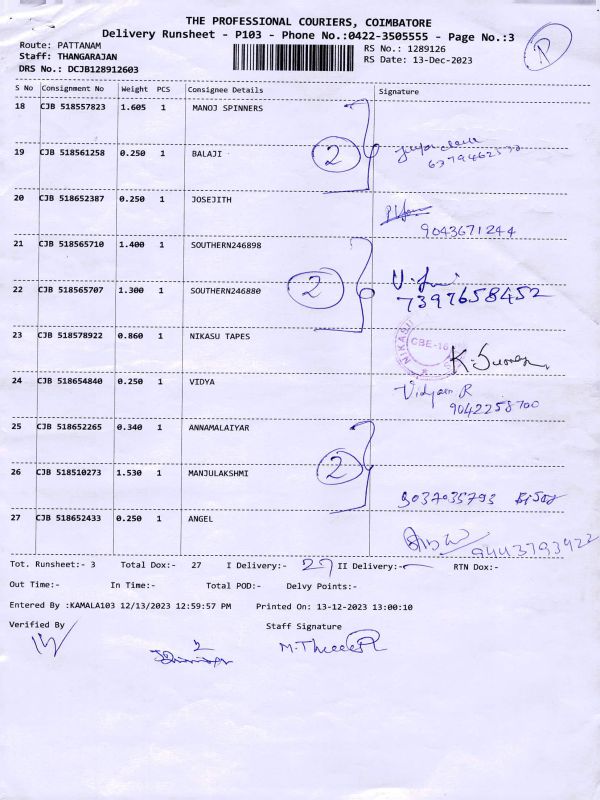 THE PROFESSIONAL COURIERS, COIMBATORE
Delivery Runsheet - P103 - Phone No.:0422-3505555 - Page No.:3
P
Route: PATTANAM RS No.: 1289126
Staff: THANGARAJAN RS Date: 13-Dec-2023
DRS No.: DCJB128912603
S No Consignment No Weight PCS Consignee Details Signature
18 CJB 518557823 1.605 1 MANOJ SPINNERS
2
19 CJB 518561258 0.250 1 BALAJI
20 CJB 518652387 0.250 1 JOSEJITH
9043671244
21 CJB 518565710 1.400 1 SOUTHERN246898
22 CJB 518565707 1.300 1 SOUTHERN246880 2
7397658452
23 CJB 578578922 0.860 1 NIKASU TAPES CBE-16
24 CJB 518654840 0.250 1 VIDYA
9042258700
25 CJB 518652265 0.340 1 ANNAMALAIYAR
2
26 CJB 518510273 1.530 1 MANJULAKSHMI
27 CJB 518652433 0.250 1 ANGEL
94443793922
Tot. Runsheet:- 3 Total Dox:- 27 I Delivery:- 27 II Delivery:- RTN Dox:-
Out Time:- In Time:- Total POD:- Delvy Points:-
Entered By :KAMALA103 12/13/2023 12:59:57 PM Printed On: 13-12-2023 13:00:10
Verified By Staff Signature